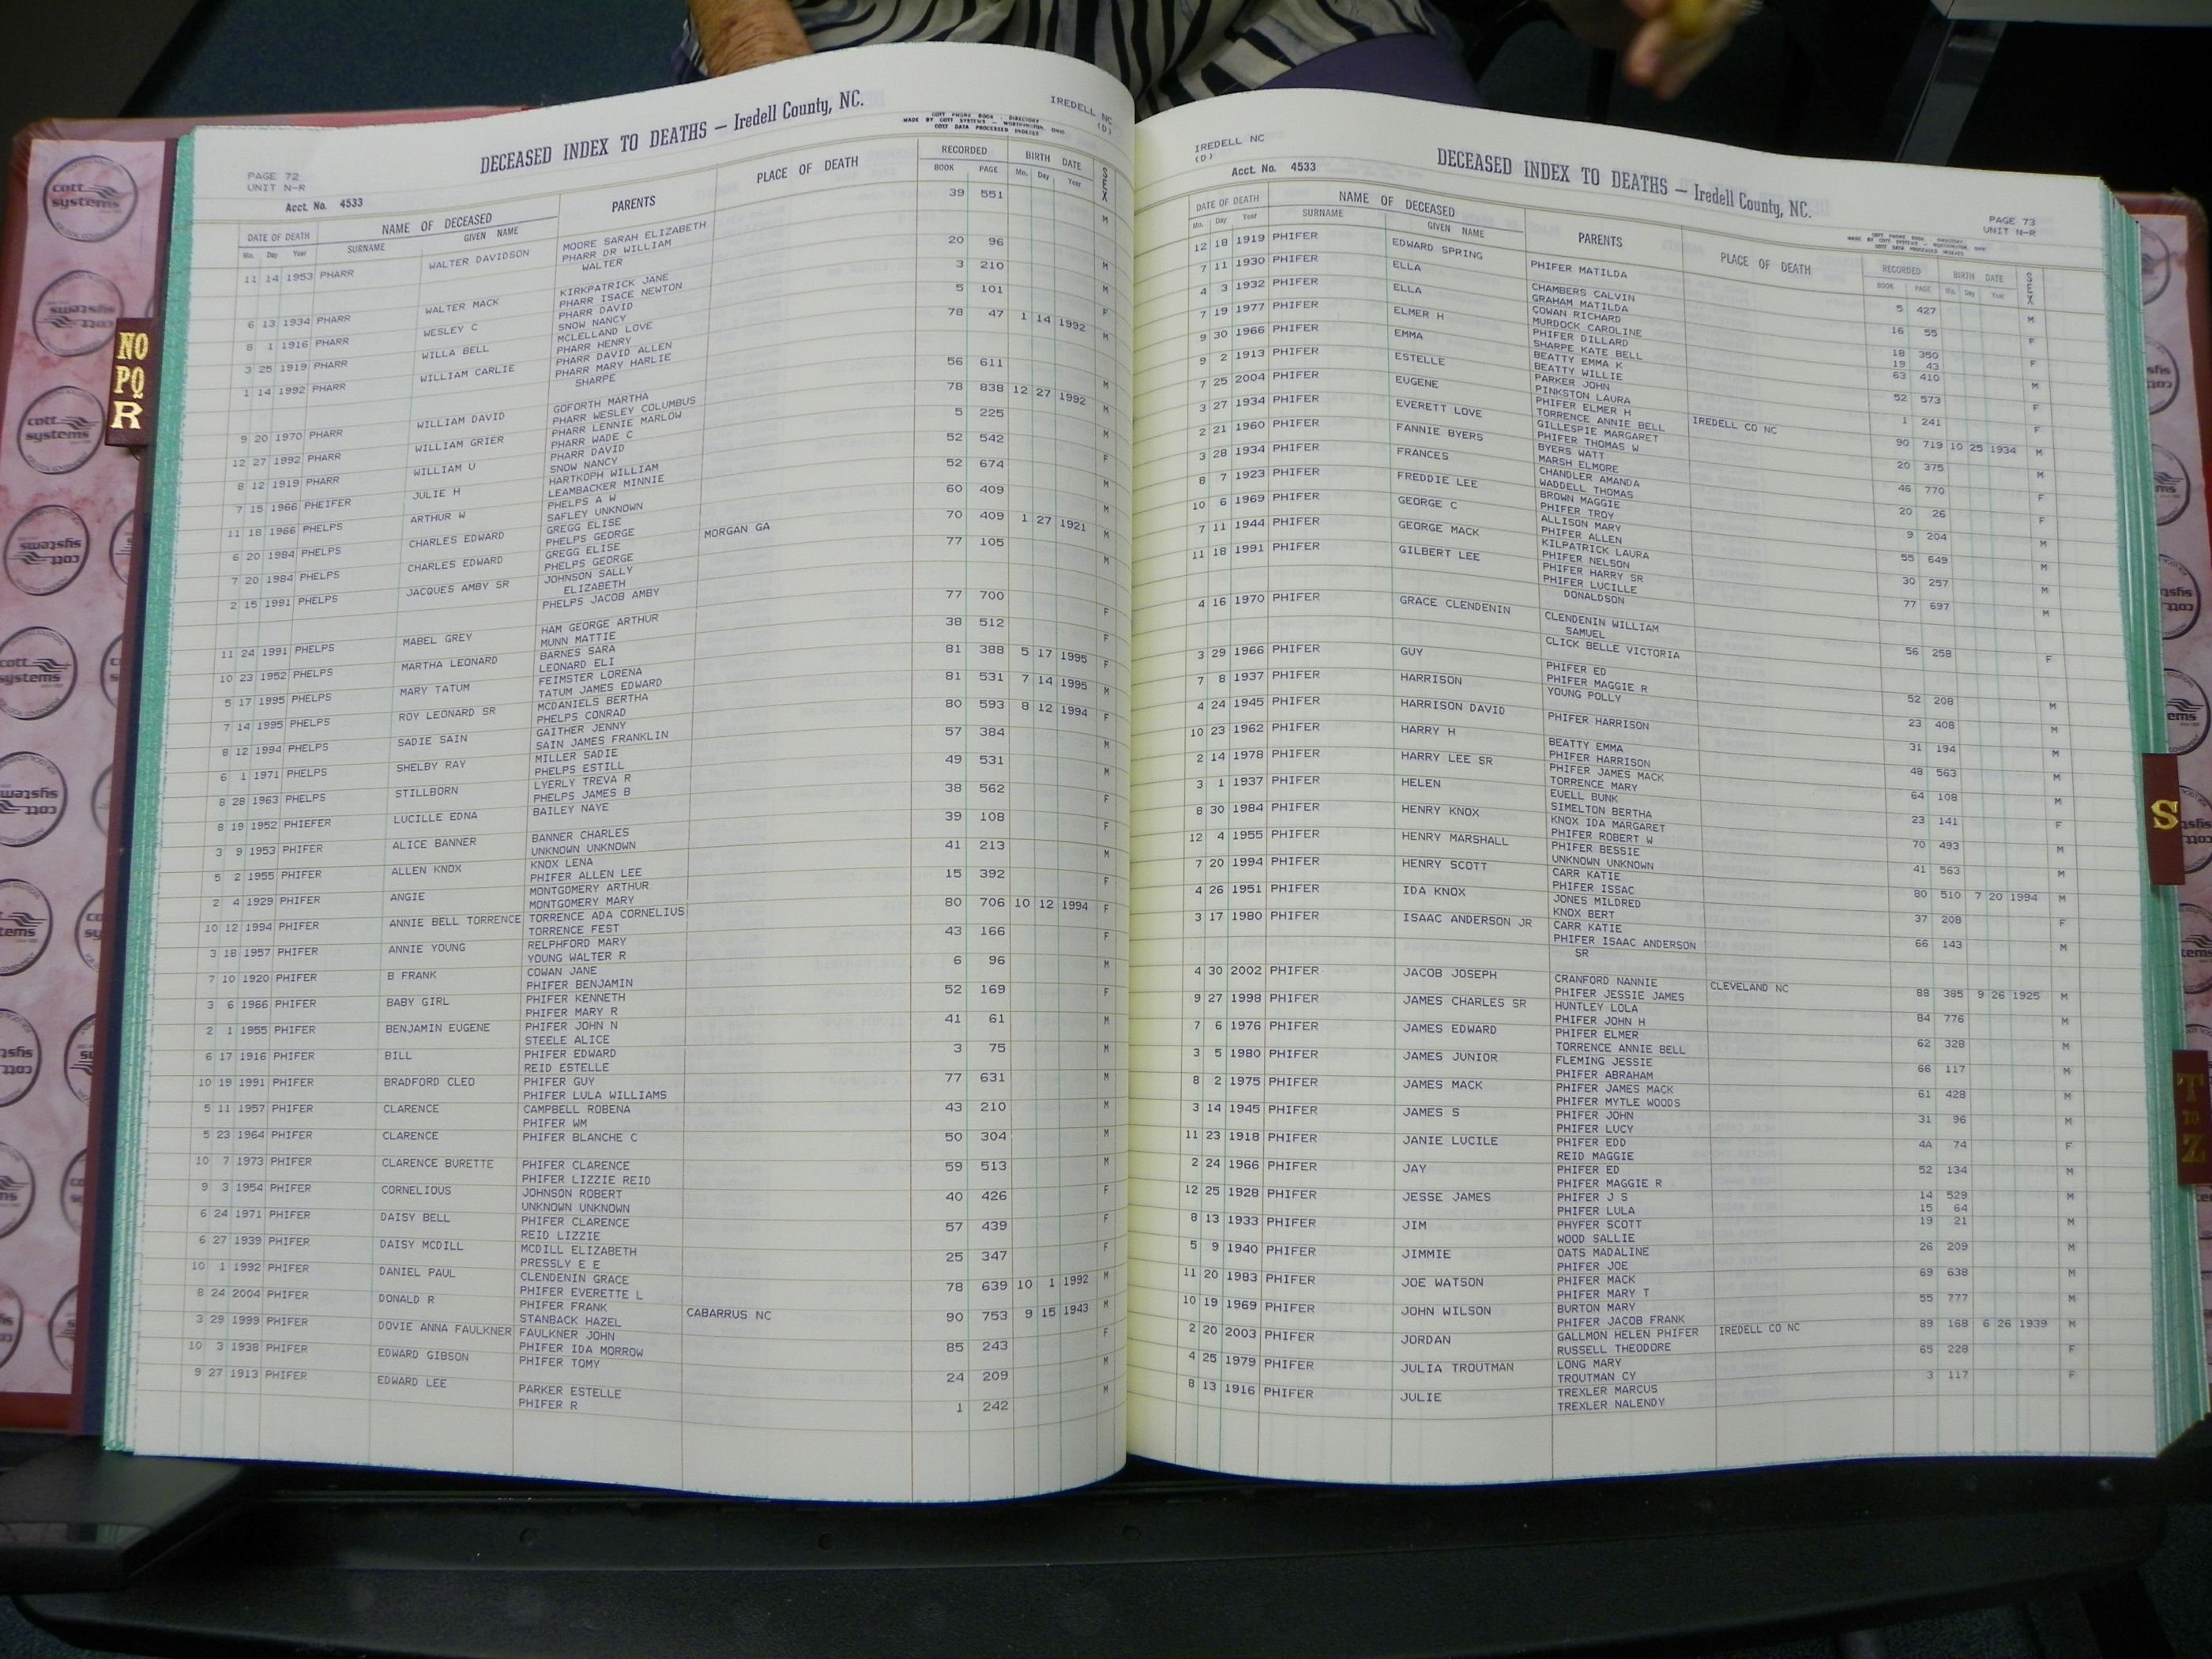 DECEASED INDEX TO DEATHS — Iredell County, NC.
IREDELL NC
(D)
COTT PHONE BOOK - DIRECTORY
MADE BY COTT SYSTEMS - WORTHINGTON, OHIO
COTT DATA PROCESSED INDEXES
PAGE 72
UNIT N-R
Acct. No. 4533
DATE OF DEATH NAME OF DECEASED PARENTS PLACE OF DEATH RECORDED BIRTH DATE SEX
Mo. Day Year SURNAME GIVEN NAME BOOK PAGE Mo. Day Year
11 14 1953 PHARR WALTER DAVIDSON MOORE SARAH ELIZABETH 39 551 M
PHARR DR WILLIAM
WALTER
6 13 1934 PHARR WALTER MACK KIRKPATRICK JANE 20 96 M
PHARR ISACE NEWTON
8 1 1916 PHARR WESLEY C PHARR DAVID 3 210 M
SNOW NANCY
3 25 1919 PHARR WILLA BELL MCLELLAND LOVE 5 101 F
PHARR HENRY
1 14 1992 PHARR WILLIAM CARLIE PHARR DAVID ALLEN 78 47 1 14 1992 M
PHARR MARY HARLIE
SHARPE
9 20 1970 PHARR WILLIAM DAVID GOFORTH MARTHA 56 611 M
PHARR WESLEY COLUMBUS
12 27 1992 PHARR WILLIAM GRIER PHARR LENNIE MARLOW 78 838 12 27 1992 M
PHARR WADE C
8 12 1919 PHARR WILLIAM U PHARR DAVID 5 225 M
SNOW NANCY
7 15 1966 PHEIFER JULIE H HARTKOPH WILLIAM 52 542 F
LEAMBACKER MINNIE
11 18 1966 PHELPS ARTHUR W PHELPS A W 52 674 M
SAFLEY UNKNOWN
6 20 1984 PHELPS CHARLES EDWARD GREGG ELISE 60 409 M
PHELPS GEORGE
7 20 1984 PHELPS CHARLES EDWARD GREGG ELISE MORGAN GA 70 409 1 27 1921 M
PHELPS GEORGE
2 15 1991 PHELPS JACQUES AMBY SR JOHNSON SALLY 77 105 M
ELIZABETH
PHELPS JACOB AMBY
11 24 1991 PHELPS MABEL GREY HAM GEORGE ARTHUR 77 700 F
MUNN MATTIE
10 23 1952 PHELPS MARTHA LEONARD BARNES SARA 38 512 F
LEONARD ELI
5 17 1995 PHELPS MARY TATUM FEIMSTER LORENA 81 388 5 17 1995 F
TATUM JAMES EDWARD
7 14 1995 PHELPS ROY LEONARD SR MCDANIELS BERTHA 81 531 7 14 1995 M
PHELPS CONRAD
8 12 1994 PHELPS SADIE SAIN GAITHER JENNY 80 593 8 12 1994 F
SAIN JAMES FRANKLIN
6 1 1971 PHELPS SHELBY RAY MILLER SADIE 57 384 M
PHELPS ESTILL
8 28 1963 PHELPS STILLBORN LYERLY TREVA R 49 531 M
PHELPS JAMES B
8 19 1952 PHIEFER LUCILLE EDNA BAILEY NAYE 38 562 F
3 9 1953 PHIFER ALICE BANNER BANNER CHARLES 39 108 F
UNKNOWN UNKNOWN
5 2 1955 PHIFER ALLEN KNOX KNOX LENA 41 213 M
PHIFER ALLEN LEE
2 4 1929 PHIFER ANGIE MONTGOMERY ARTHUR 15 392 F
MONTGOMERY MARY
10 12 1994 PHIFER ANNIE BELL TORRENCE TORRENCE ADA CORNELIUS 80 706 10 12 1994 F
TORRENCE FEST
3 18 1957 PHIFER ANNIE YOUNG RELPHFORD MARY 43 166 F
YOUNG WALTER R
7 10 1920 PHIFER B FRANK COWAN JANE 6 96 M
PHIFER BENJAMIN
3 6 1966 PHIFER BABY GIRL PHIFER KENNETH 52 169 F
PHIFER MARY R
2 1 1955 PHIFER BENJAMIN EUGENE PHIFER JOHN N 41 61 M
STEELE ALICE
6 17 1916 PHIFER BILL PHIFER EDWARD 3 75 M
REID ESTELLE
10 19 1991 PHIFER BRADFORD CLEO PHIFER GUY 77 631 M
PHIFER LULA WILLIAMS
5 11 1957 PHIFER CLARENCE CAMPBELL ROBENA 43 210 M
PHIFER WM
5 23 1964 PHIFER CLARENCE PHIFER BLANCHE C 50 304 M
10 7 1973 PHIFER CLARENCE BURETTE PHIFER CLARENCE 59 513 M
PHIFER LIZZIE REID
9 3 1954 PHIFER CORNELIOUS JOHNSON ROBERT 40 426 F
UNKNOWN UNKNOWN
6 24 1971 PHIFER DAISY BELL PHIFER CLARENCE 57 439 F
REID LIZZIE
6 27 1939 PHIFER DAISY MCDILL MCDILL ELIZABETH 25 347 F
PRESSLY E E
10 1 1992 PHIFER DANIEL PAUL CLENDENIN GRACE 78 639 10 1 1992 M
PHIFER EVERETTE L
8 24 2004 PHIFER DONALD R PHIFER FRANK CABARRUS NC 90 753 9 15 1943 M
STANBACK HAZEL
3 29 1999 PHIFER DOVIE ANNA FAULKNER FAULKNER JOHN 85 243 F
PHIFER IDA MORROW
10 3 1938 PHIFER EDWARD GIBSON PHIFER TOMY 24 209 M
9 27 1913 PHIFER EDWARD LEE PARKER ESTELLE 1 242 M
PHIFER R
IREDELL NC
(D)
Acct. No. 4533
DECEASED INDEX TO DEATHS — Iredell County, NC.
PAGE 73
UNIT N-R
COTT PHONE BOOK - DIRECTORY
MADE BY COTT SYSTEMS - WORTHINGTON, OHIO
COTT DATA PROCESSED INDEXES
DATE OF DEATH NAME OF DECEASED PARENTS PLACE OF DEATH RECORDED BIRTH DATE SEX
Mo. Day Year SURNAME GIVEN NAME BOOK PAGE Mo. Day Year
12 18 1919 PHIFER EDWARD SPRING PHIFER MATILDA 5 427 M
7 11 1930 PHIFER ELLA CHAMBERS CALVIN 16 55 F
GRAHAM MATILDA
4 3 1932 PHIFER ELLA COWAN RICHARD 18 350 F
MURDOCK CAROLINE 19 43
7 19 1977 PHIFER ELMER H PHIFER DILLARD 63 410 M
SHARPE KATE BELL
9 30 1966 PHIFER EMMA BEATTY EMMA K 52 573 F
BEATTY WILLIE
9 2 1913 PHIFER ESTELLE PARKER JOHN 1 241 F
PINKSTON LAURA
7 25 2004 PHIFER EUGENE PHIFER ELMER H IREDELL CO NC 90 719 10 25 1934 M
TORRENCE ANNIE BELL
3 27 1934 PHIFER EVERETT LOVE GILLESPIE MARGARET 20 375 M
PHIFER THOMAS W
2 21 1960 PHIFER FANNIE BYERS BYERS WATT 46 770 F
MARSH ELMORE
3 28 1934 PHIFER FRANCES CHANDLER AMANDA 20 26 F
WADDELL THOMAS
8 7 1923 PHIFER FREDDIE LEE BROWN MAGGIE 9 204 M
PHIFER TROY
10 6 1969 PHIFER GEORGE C ALLISON MARY 55 649 M
PHIFER ALLEN
7 11 1944 PHIFER GEORGE MACK KILPATRICK LAURA 30 257 M
PHIFER NELSON
11 18 1991 PHIFER GILBERT LEE PHIFER HARRY SR 77 697 M
PHIFER LUCILLE
DONALDSON
4 16 1970 PHIFER GRACE CLENDENIN CLENDENIN WILLIAM 56 258 F
SAMUEL
CLICK BELLE VICTORIA
3 29 1966 PHIFER GUY PHIFER ED 52 208 M
PHIFER MAGGIE R
7 8 1937 PHIFER HARRISON YOUNG POLLY 23 408 M
4 24 1945 PHIFER HARRISON DAVID PHIFER HARRISON 31 194 M
10 23 1962 PHIFER HARRY H BEATTY EMMA 48 563 M
PHIFER HARRISON
2 14 1978 PHIFER HARRY LEE SR PHIFER JAMES MACK 64 108 M
TORRENCE MARY
3 1 1937 PHIFER HELEN EUELL BUNK 23 141 F
SIMELTON BERTHA
8 30 1984 PHIFER HENRY KNOX KNOX IDA MARGARET 70 493 M
PHIFER ROBERT W
12 4 1955 PHIFER HENRY MARSHALL PHIFER BESSIE 41 563 M
UNKNOWN UNKNOWN
7 20 1994 PHIFER HENRY SCOTT CARR KATIE 80 510 7 20 1994 M
PHIFER ISSAC
4 26 1951 PHIFER IDA KNOX JONES MILDRED 37 208 F
KNOX BERT
3 17 1980 PHIFER ISAAC ANDERSON JR CARR KATIE 66 143 M
PHIFER ISAAC ANDERSON
SR
4 30 2002 PHIFER JACOB JOSEPH CRANFORD NANNIE CLEVELAND NC 88 385 9 26 1925 M
PHIFER JESSIE JAMES
9 27 1998 PHIFER JAMES CHARLES SR HUNTLEY LOLA 84 776 M
PHIFER JOHN H
7 6 1976 PHIFER JAMES EDWARD PHIFER ELMER 62 328 M
TORRENCE ANNIE BELL
3 5 1980 PHIFER JAMES JUNIOR FLEMING JESSIE 66 117 M
PHIFER ABRAHAM
8 2 1975 PHIFER JAMES MACK PHIFER JAMES MACK 61 428 M
PHIFER MYTLE WOODS
3 14 1945 PHIFER JAMES S PHIFER JOHN 31 96 M
PHIFER LUCY
11 23 1918 PHIFER JANIE LUCILE PHIFER EDD 4A 74 F
REID MAGGIE
2 24 1966 PHIFER JAY PHIFER ED 52 134 M
PHIFER MAGGIE R
12 25 1928 PHIFER JESSE JAMES PHIFER J S 14 529 M
PHIFER LULA 15 64
8 13 1933 PHIFER JIM PHYFER SCOTT 19 21 M
WOOD SALLIE
5 9 1940 PHIFER JIMMIE OATS MADALINE 26 209 M
PHIFER JOE
11 20 1983 PHIFER JOE WATSON PHIFER MACK 69 638 M
PHIFER MARY T
10 19 1969 PHIFER JOHN WILSON BURTON MARY 55 777 M
PHIFER JACOB FRANK
2 20 2003 PHIFER JORDAN GALLMON HELEN PHIFER IREDELL CO NC 89 168 6 26 1939 M
RUSSELL THEODORE
4 25 1979 PHIFER JULIA TROUTMAN LONG MARY 65 228 F
TROUTMAN CY
8 13 1916 PHIFER JULIE TREXLER MARCUS 3 117 F
TREXLER NALENDY
NO
PQ
R
S
T
TO
Z
cott
systems